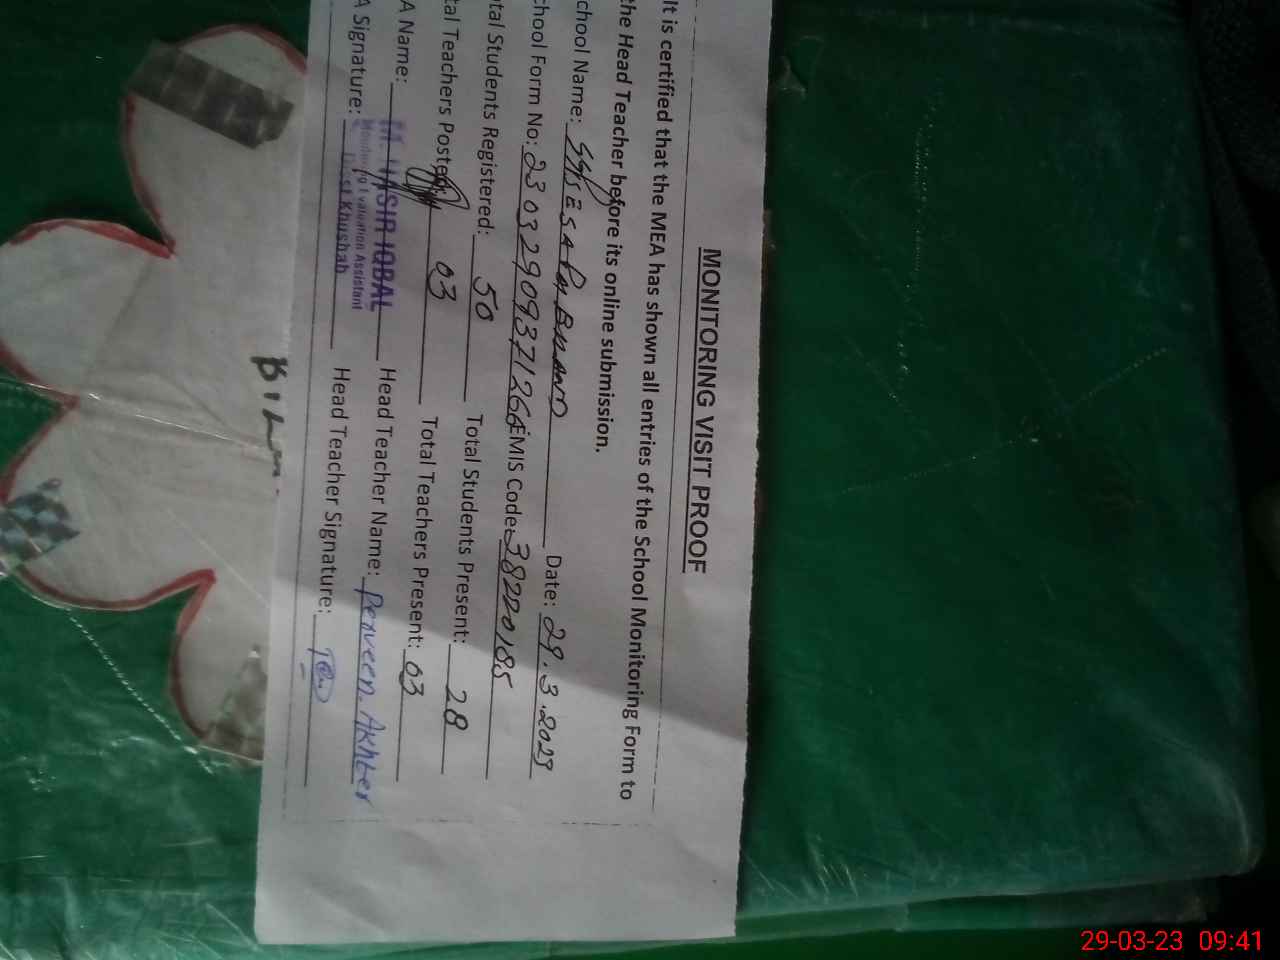 MONITORING VISIT PROOF
It is certified that the MEA has shown all entries of the School Monitoring Form to
the Head Teacher before its online submission.
chool Name: Date: 29.3.2023
chool Form No: 23032909371266 EMIS Code: 38220185
tal Students Registered: 50 Total Students Present: 28
tal Teachers Posted: 03 Total Teachers Present: 03
A Name: M. YASIR IQBAL Head Teacher Name: Perveen. Akhter
Monitoring Evaluation Assistant
A Signature: Distt Khushab Head Teacher Signature:
29-03-23 09:41